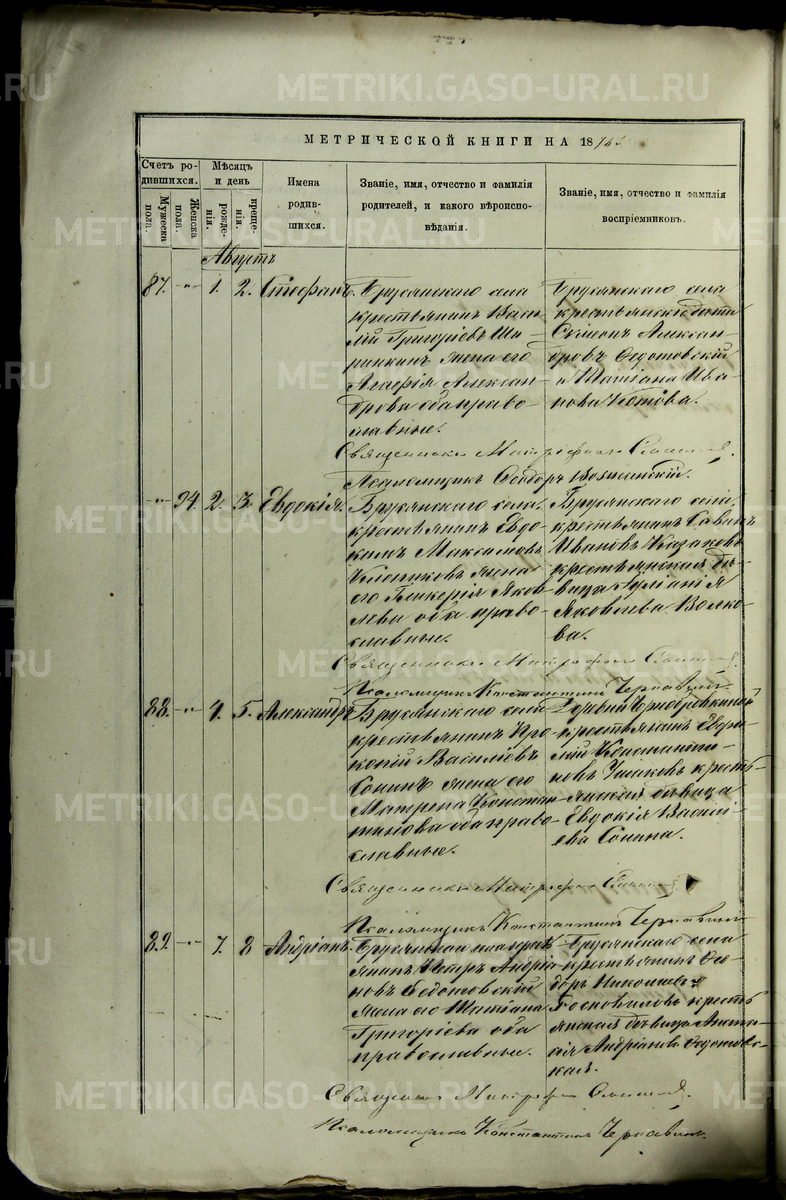 МЕТРИЧЕСКОЙ КНИГИ НА 187
Счетъ ро-
дившихся.
Мужеска
пола.
Женска
пола.
Мѣсяцъ
и день
рожде-
нія.
креще-
нія.
Имена
родив-
шихся.
Званіе, имя, отчество и фамилія
родителей, и какого вѣроиспо-
вѣданія.
Званіе, имя, отчество и фамилія
воспріемниковъ.
Августъ
87. -"- 1. 2. Стефанъ.
Брусянскаго села
крестьянинъ Васи-
лій Григорьевъ
жена его
Агафія Алексан-
дрова оба право-
славные.
Брусянскаго села
крестьянскіе дѣти
Симеонъ Алексан-
дровъ Федотовскій
и Татіана Ива-
нова Котова.
Священникъ Митрофанъ
Псаломщикъ Ѳеодоръ Вознесенскій.
-"- 94. 2. 3. Евдокія.
Брусянскаго села
крестьянинъ Евдо-
кимъ Максимовъ
жена
его Гликерія Яков-
лева оба право-
славные.
Брусянскаго села
крестьянинъ Савинъ
Ивановъ Казаковъ
крестьянская дѣ-
вица Іуліанія
Яковлева Волко-
ва.
Священникъ Митрофанъ
Псаломщикъ Константинъ Чернавинъ
88. -"- 4. 5. Александръ
Брусянскаго села
крестьянинъ Про-
копій Васильевъ
Сонинъ жена его
Матрена Констан-
тинова оба право-
славные.
Деревни Чернобровкиной
крестьянинъ
Константи-
новъ Ушаковъ кресть-
янская дѣвица
Евдокія Василі-
ева Сонина.
Священникъ Митрофанъ
Псаломщикъ Константинъ Чернавинъ
89. -"- 7. 8 Андріанъ.
Брусянскаго села крест-
янинъ Петръ Андріа-
новъ Федотовскій
жена его Татіана
Григоріева оба
православные.
Брусянскаго села
крестьянинъ Ѳео-
доръ Николаевъ
кресть
янская дѣвица Анта-
Андріанова Федотовс-
кая.
Священникъ Митрофанъ
Псаломщикъ Константинъ Чернавинъ.
METRIKI.GASO-URAL.RU